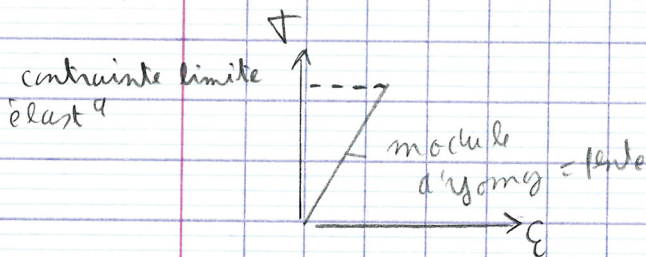 σ
contrainte limite
élast q
module
d'young = pente
ε